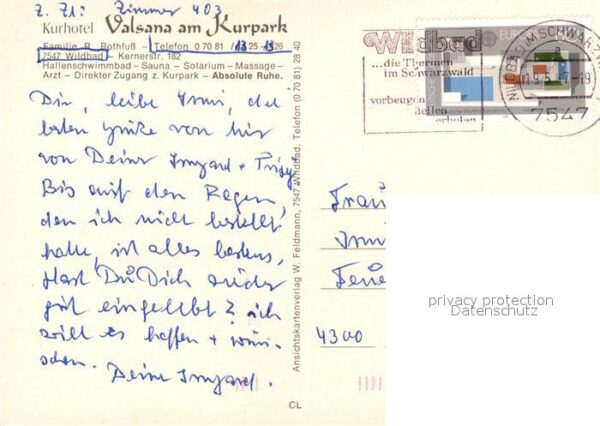 z. Zt: Zimmer 403
Kurhotel Valsana am Kurpark
Familie R. Rothfuß – Telefon 0 70 81
7547 Wildbad – Kernerstr. 182
Hallenschwimmbad – Sauna – Solarium – Massage –
Arzt – Direkter Zugang z. Kurpark – Absolute Ruhe.
Dir, liebe Irmi, die
besten Grüße von hier
von Deiner Irmgard +
Bis auf den Regen,
den ich nicht bestellt
hatte, ist alles bestens,
Hast Du Dich wieder
gut eingelebt? ich
will es hoffen + wün-
schen. Deine Irmgard.
Ansichtskartenverlag W. Feldmann, 7547 Wildbad, Telefon (0 70 81) 28 40
CL
Wildbad
...die Thermen
im Schwarzwald
vorbeugen
heilen
erholen
EUROPA
WILDBAD IM SCHWARZW
7547
Frau
Irm
4300
privacy protection
Datenschutz